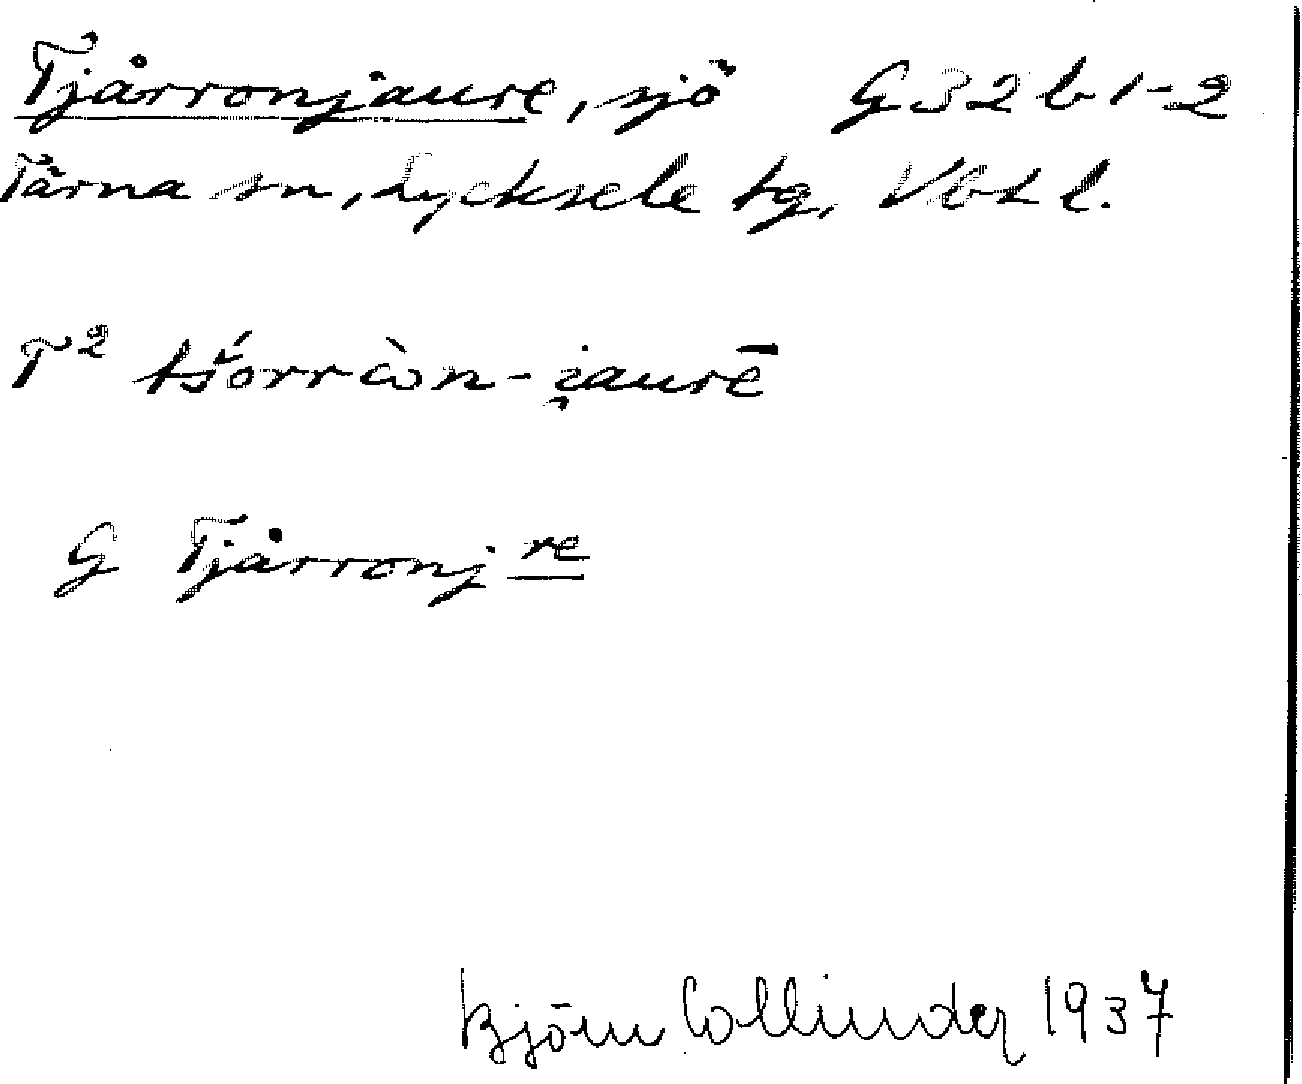 Tjårronjaure, sjö G32b1-2
Tärna sn, Lycksele tg, Vbtl.
T² tš́orròn-i̯aurē
G Tjårronj re
Björn Collinder 1937